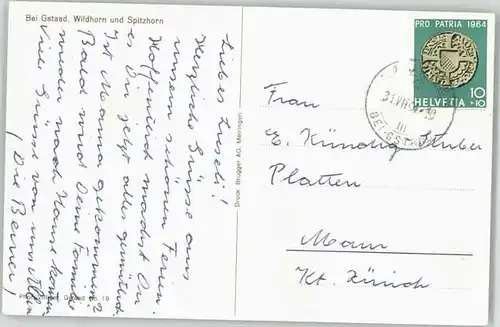 Bei Gstaad, Wildhorn und Spitzhorn
Liebes Liseli!
Herzliche Grüsse aus
unseren schönen Ferien.
Hoffentlich machst Du
es Dir jetzt alles gemütlich.
Ist Mama gekommen?
Bald wird Deine Familie
wieder nach Hause kommen
Viele Grüsse von uns Allen
Die Berner!
Druck: Brügger AG, Meiringen
19
PRO PATRIA 1964
10
+10
HELVETIA
III
BEI GSTAAD
Frau
E. Kündig Stuber
Platten
Kt. Zürich